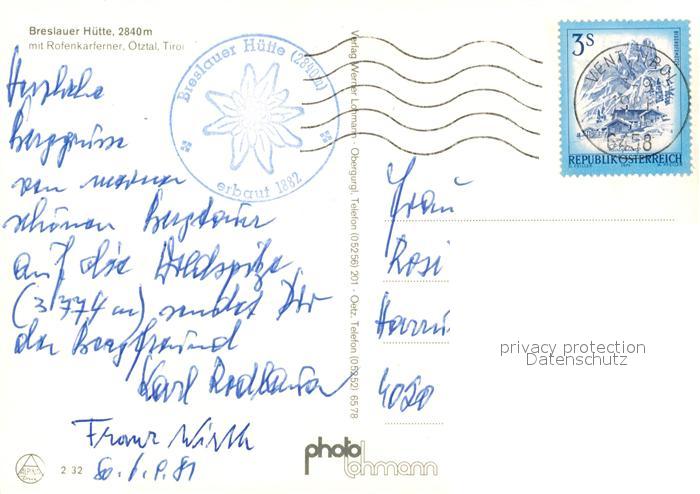 Breslauer Hütte, 2840m
mit Rofenkarferner, Ötztal, Tirol
Herzliche
Berggrüsse
von meiner
schönen Bergtour
auf die Wildspitze
(3774m) sendet Dir
der Bergfreund
Karl
Franz Wirth
So. 6.9.81
2 32
Breslauer Hütte (2840m)
erbaut 1882
Verlag Werner Lohmann · Obergurgl, Telefon (05256) 201 · Oetz, Telefon (05252) 6578
photo
lohmann
3 S
REPUBLIK ÖSTERREICH
VENT, TIROL
6458
Frau
Rosi
4020
privacy protection
Datenschutz